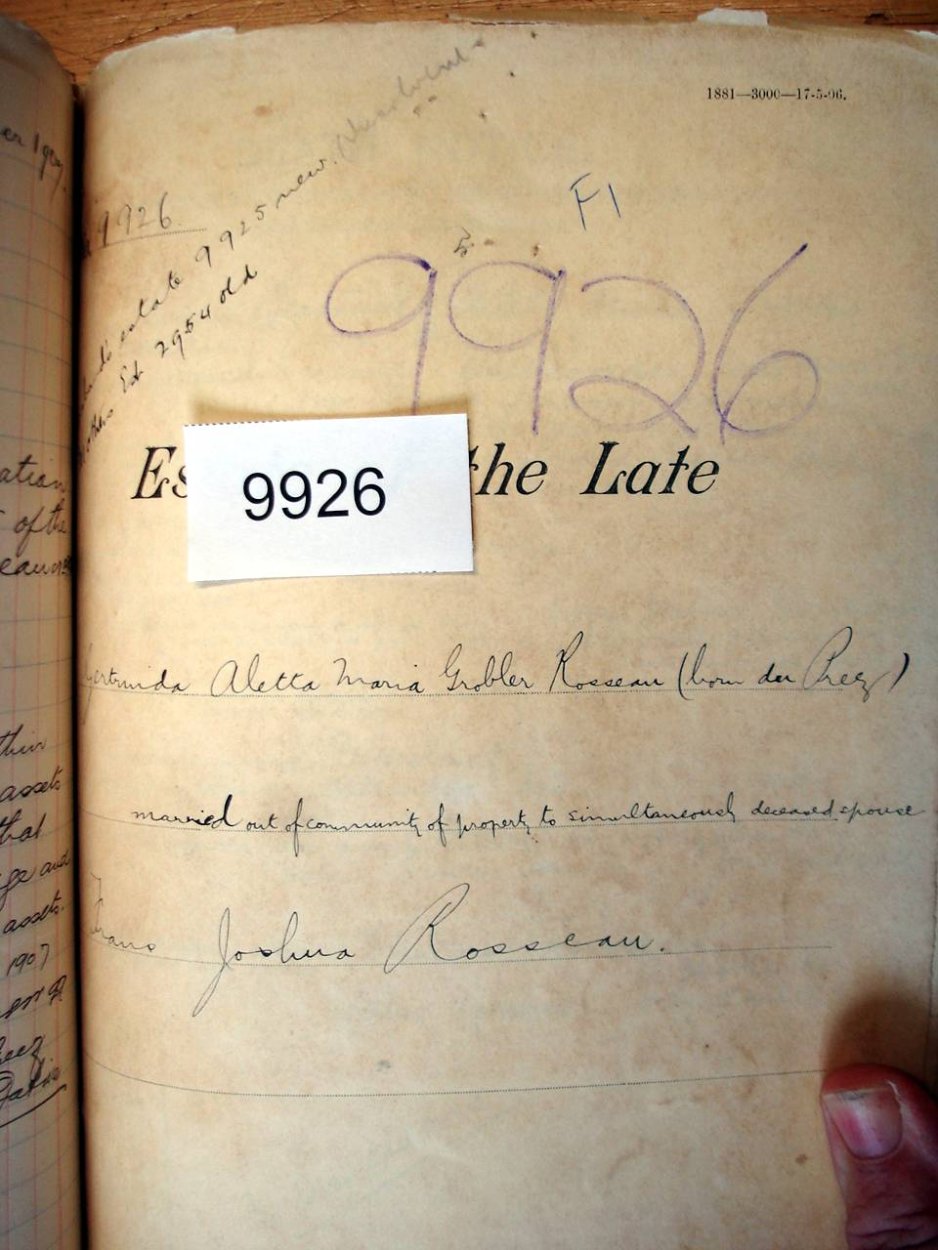 1881—3000—17-5-06.
F1
9926
estate 9925 new.
Est 2954 old
9926
Es the Late
9926
Aletta Maria Grobler Rosseau (born du Preez)
married out of community of property to simultaneously deceased spouse
Frans Joshua Rosseau.
ation
of the
their
assets
that
and
assets.
1907